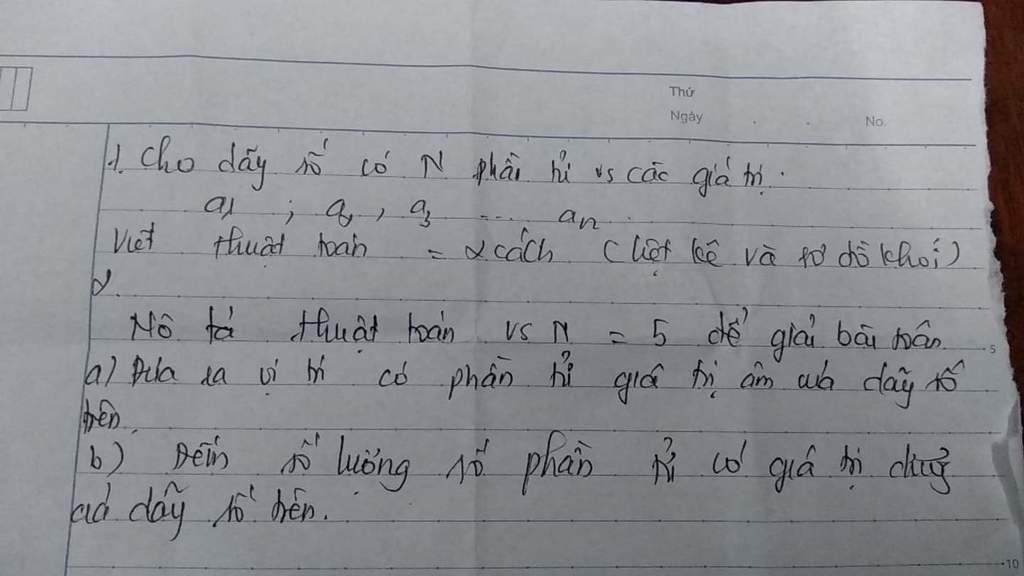 Thứ
Ngày
No.
1. Cho dãy số có N phần tử vs các giá trị.
a1 ; a2, a3 .... an.
Viết thuật toán = 2 cách (liệt kê và sơ đồ khối)
2.
Mô tả thuật toán vs N = 5 để giải bài toán
5
a) Đưa ra vị trí có phần tử giá trị âm của dãy số
trên.
b) Đếm số lượng số phần tử có giá trị dương
của dãy số trên.
10